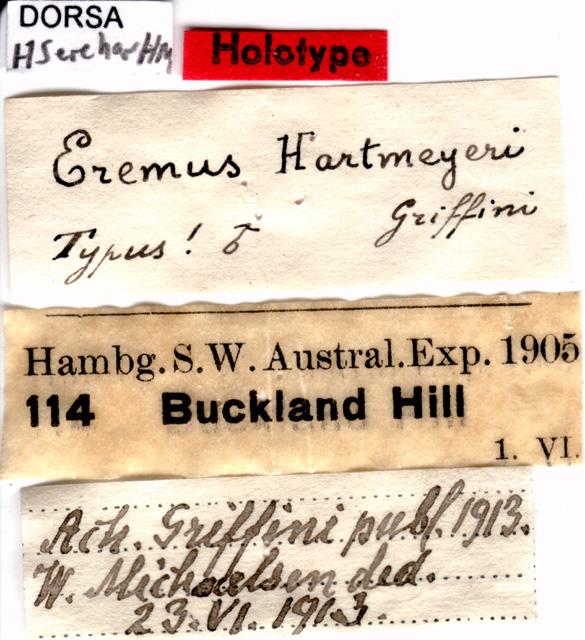 DORSA
Holotype
Eremus Hartmeyeri
Griffini
Typus! ♂
Hambg. S.W. Austral. Exp. 1905
114 Buckland Hill
1. VI.
Ach. Griffini publ. 1913.
W. Michaelsen ded.
23. VI. 1913.